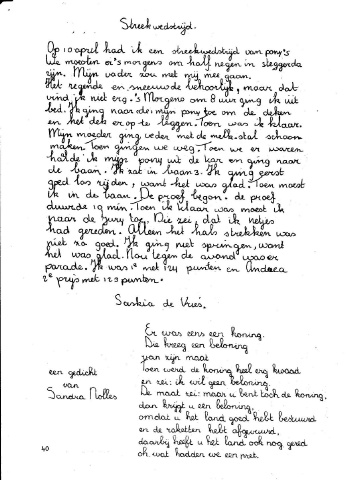 Streekwedstrijd.
Op 10 april had ik een streekwedstrijd van pony's
We moesten er 's morgens om half negen in steggerda
zijn. Mijn vader zou met mij mee gaan.
Het regende en sneeuwde behoorlijk, maar, dat
vind ik niet erg. 's Morgens om 8 uur ging ik uit
bed. Ik ging naar de mijn pony toe om de deken
en het dek er op te leggen. Toen was ik klaar.
Mijn moeder ging verder met de melk-stal schoon
maken. Toen gingen we weg. Toen we er waren
haalde ik mijn pony uit de kar en ging naar
de baan. Ik zat in baan 2. Ik ging eerst
goed los rijden, want het was glad. Toen moest
ik in de baan. De proef begon. de proef
duurde 10 min. Toen ik klaar was moest ik
naar de jury toe. Die zei, dat ik netjes
had gereden. Alleen het hals strekken was
niet zo goed. Ik ging niet springen, want
het was glad. Nou tegen de avond was er
parade. Ik was 1e met 124 punten en Andrea
2e prijs met 123 punten.
Saskia de Vries.
een gedicht
van
Sandra Nolles
Er was eens een koning.
Die kreeg een beloning
van zijn maat
Toen werd de koning heel erg kwaad
en zei: ik wil geen beloning.
De maat zei: maar u bent toch de koning.
dan krijgt u een beloning,
omdat u het land goed hebt bestuurd
en de raketten hebt afgevuurd,
daarbij heeft u het land ook nog gered
oh wat hadden we een pret.
40